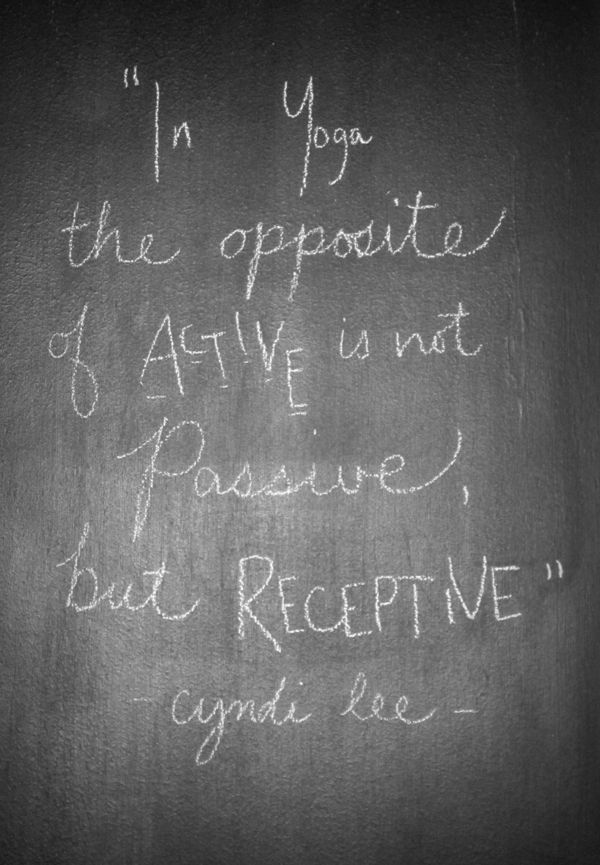 "In Yoga
the opposite
of ACTIVE is not
Passive,
but RECEPTIVE"
- cyndi lee -